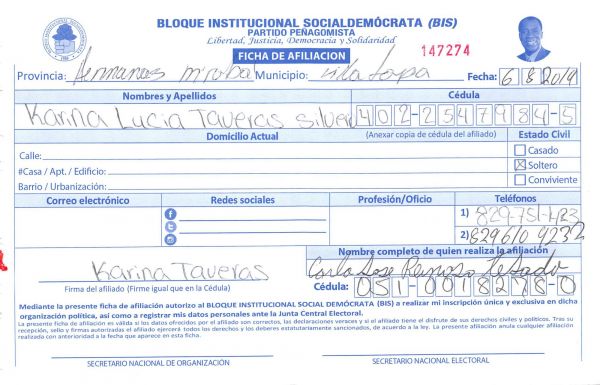 BLOQUE INSTITUCIONAL SOCIALDEMÓCRATA (BIS)
PARTIDO PEÑAGOMISTA
Libertad, Justicia, Democracia y Solidaridad
FICHA DE AFILIACION
147274
Provincia: Hermanas Miraba Municipio: Villa Tapa Fecha: 6 8 2019
Nombres y Apellidos Cédula
Karina Lucia Taveras 402-2547984-5
Domicilio Actual (Anexar copia de cédula del afiliado) Estado Civil
Calle: Casado
#Casa / Apt. / Edificio: Soltero
Barrio / Urbanización: Conviviente
Correo electrónico Redes sociales Profesión/Oficio Teléfonos
1) 829-751-
2) 829610
Nombre completo de quien realiza la afiliación
Karina Taveras Carlo Jose
Firma del afiliado (Firme igual que en la Cédula) Cédula: 051-0018278-0
Mediante la presente ficha de afiliación autorizo al BLOQUE INSTITUCIONAL SOCIAL DEMÓCRATA (BIS) a realizar mi inscripción única y exclusiva en dicha
organización política, así como a registrar mis datos personales ante la Junta Central Electoral.
La presente ficha de afiliación es válida si los datos ofrecidos por el afiliado son correctos, las declaraciones veraces y si el afiliado tiene el disfrute de sus derechos civiles y políticos. Tras su
recepción, sello y firmas autorizadas el afiliado ejercerá todos los derechos y los deberes estatutariamente sancionados, de acuerdo a la ley. La presente afiliación anula cualquier afiliación
realizada con anterioridad a la fecha que aparece en esta ficha.
SECRETARIO NACIONAL DE ORGANIZACIÓN SECRETARIO NACIONAL ELECTORAL